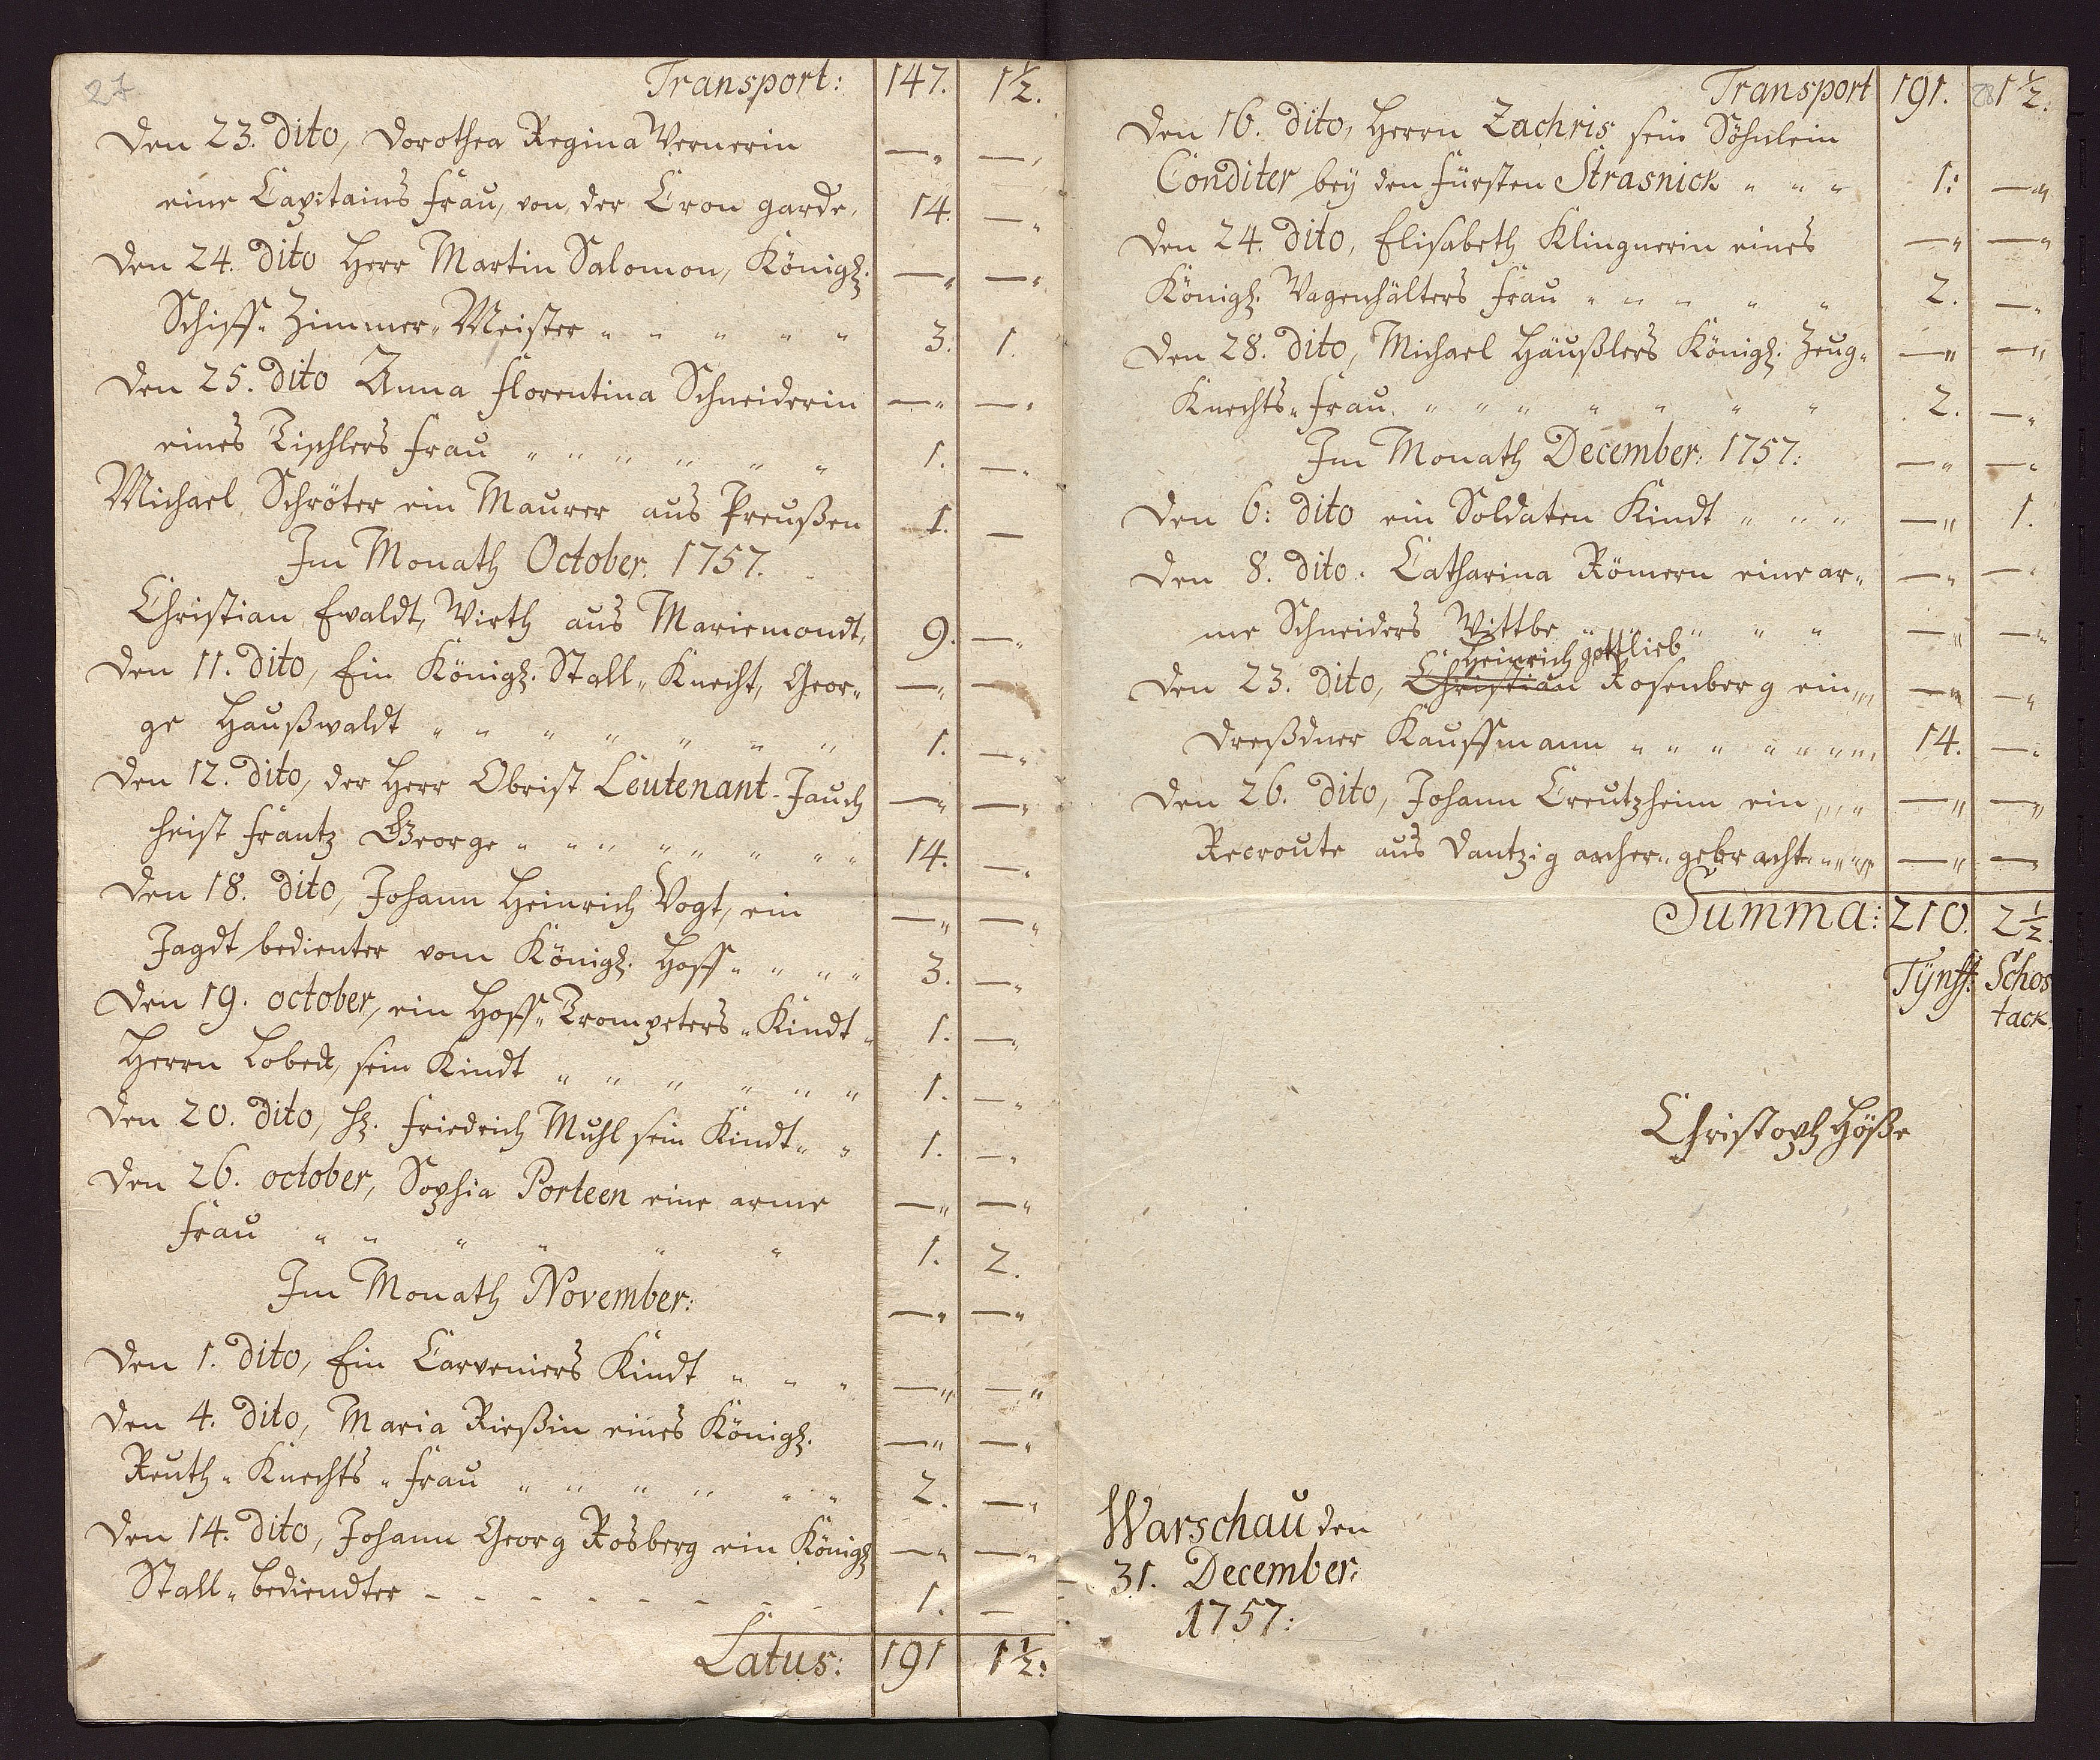 27
Transport: 147. 1½.
Den 23. Dito, Dorothea Regina Wernerin —„ —„
eine Capitains Frau, von der Cron garde. 14. —„
Den 24. Dito Herr Martin Salomon, Königl. —„ —„
Schiff„ Zimmer„ Meister „ „ „ „ „ 3. 1.
Den 25. Dito Anna Florentina Schneiderin —„ —„
eines Tischlers Frau „ „ „ „ „ „ 1. —„
Michael Schröter ein Maurer aus Preußen 1. —
Im Monath October. 1757.
Christian Ewaldt, Wirth aus Mariemondt, 9. —„
Den 11. Dito, Ein Königl. Stall„ Knecht, Geor„ —„ —
ge Haußwaldt „ „ „ „ „ „ „ 1. —„
Den 12. Dito, der Herr Obrist Leutenant Jauch —„ —„
heist Frantz George „ „ „ „ „ „ „ „ 14. —„
Den 18. Dito, Johann Heinrich Vogt, ein —„ —„
Jagdt bedienter vom Königl. Hoff „ „ „ „ 3. —„
Den 19. october, ein Hoff„ Trompeters„ Kindt „ 1. —„
Herrn Lobeck, sein Kindt „ „ „ „ „ „ 1. —„
Den 20. Dito, H. Friedrich Muhl sein Kindt „ „ 1. —„
Den 26. october, Sophia Porteen eine arme —„ —„
Frau „ „ „ „ „ „ 1. 2.
Im Monath November: —„ —„
Den 1. Dito, Ein Carveniers Kindt „ „ „ —„ —„
Den 4. Dito, Maria Rießin eines Königl. —„ —„
Reuth„ Knechts„ Frau „ „ „ „ „ „ 2. —„
Den 14. Dito, Johann Georg Rosberg ein Königl —„ —„
Stall„ bediendter - - - - - - - - 1. —
Latus: 191 1½:
28
Transport 191. 1½.
Den 16. Dito, Herrn Zachris sein Söhnlein
Conditer bey den Fürsten Strasnick „ „ „ 1: —„
Den 24. Dito, Elisabeth Klingnerin eines —„ —„
Königl. Wagenhälters Frau „ „ „ „ „ 2. —„
Den 28. Dito, Michael Häußlers Königl. Zeug„ —„ —„
Knechts„ Frau „ „ „ „ „ „ „ 2. —„
Im Monath December: 1757: —„ —„
Den 6: Dito ein Soldaten Kindt „ „ „ —„ 1.
Den 8. Dito. Catharina Römern eine ar„ —„ —„
me Schneiders Wittbe „ „ „ „ „ —„ —„
Heinrich gottlieb
Den 23. Dito, Christian Rosenberg ein „„ —„ —„
Dreßdner Kauffmann „ „ „ „ „ „ „ „ 14. —„
Den 26. Dito, Johann Creutzheim ein „„„ —„ —„
Recroute aus Dantzig anher„ gebracht „„„ —„ —
Summa: 210. 2½.
Tynff. Schos
tack.
Christoph Höße
Warschau den
31. December:
1757: